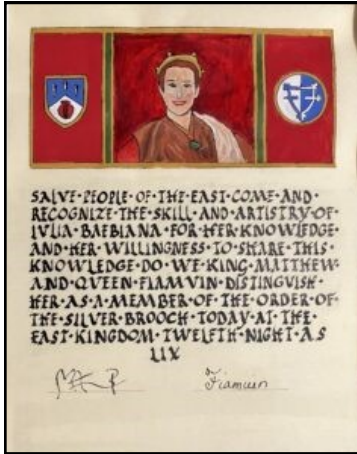 SALVE·PEOPLE·OF·THE·EAST·COME·AND·
RECOGNIZE·THE·SKILL·AND·ARTISTRY·OF·
IVLIA·BAEBIANA·FOR·HER·KNOWLEDGE·
AND·HER·WILLINGNESS·TO·SHARE·THIS·
KNOWLEDGE·DO·WE·KING·MATTHEW·
AND·QUEEN·FIAMVIN·DISTINGVISH·
HER·AS·A·MEMBER·OF·THE·ORDER·OF·
THE·SILVER·BROOCH·TODAY·AT·THE·
EAST·KINGDOM·TWELFTH·NIGHT·A·S
LIX
Fiamuin